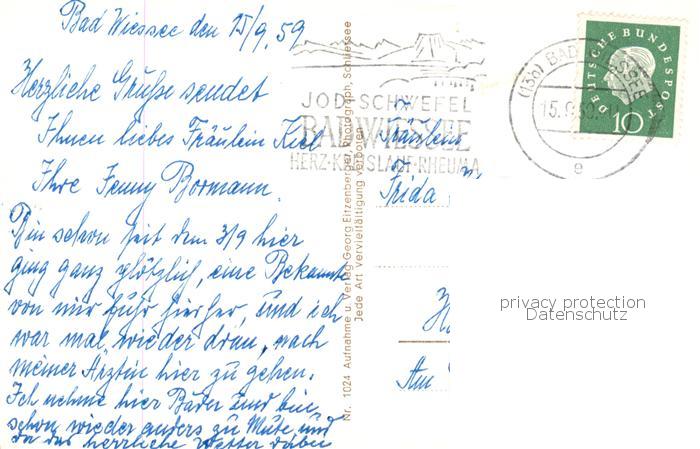 Bad Wiessee den 15/9. 59
Herzliche Grüße sendet
Ihnen liebes Fräulein Kiel
Ihre Jenny Bormann.
Bin schon seit dem 3/9 hier
ging ganz plötzlich, eine Bekannte
von mir fuhr hierher, und ich
war mal wieder dran, nach
meiner Ärztin hier zu gehen.
Ich nehme hier Bäder und bin
schon wieder anders zu Mute, und
da das herrliche Wetter dabei
Nr. 1024 Aufnahme u. Verlag Georg Eitzenberger, Photograph, Schliersee
Jede Art Vervielfältigung verboten
JOD-SCHWEFEL
BAD WIESSEE
HERZ-KREISLAUF-RHEUMA
(13b) BAD WIESSEE
15.9.59
e
DEUTSCHE BUNDESPOST
10
Fräulein
Frida
Am
privacy protection
Datenschutz